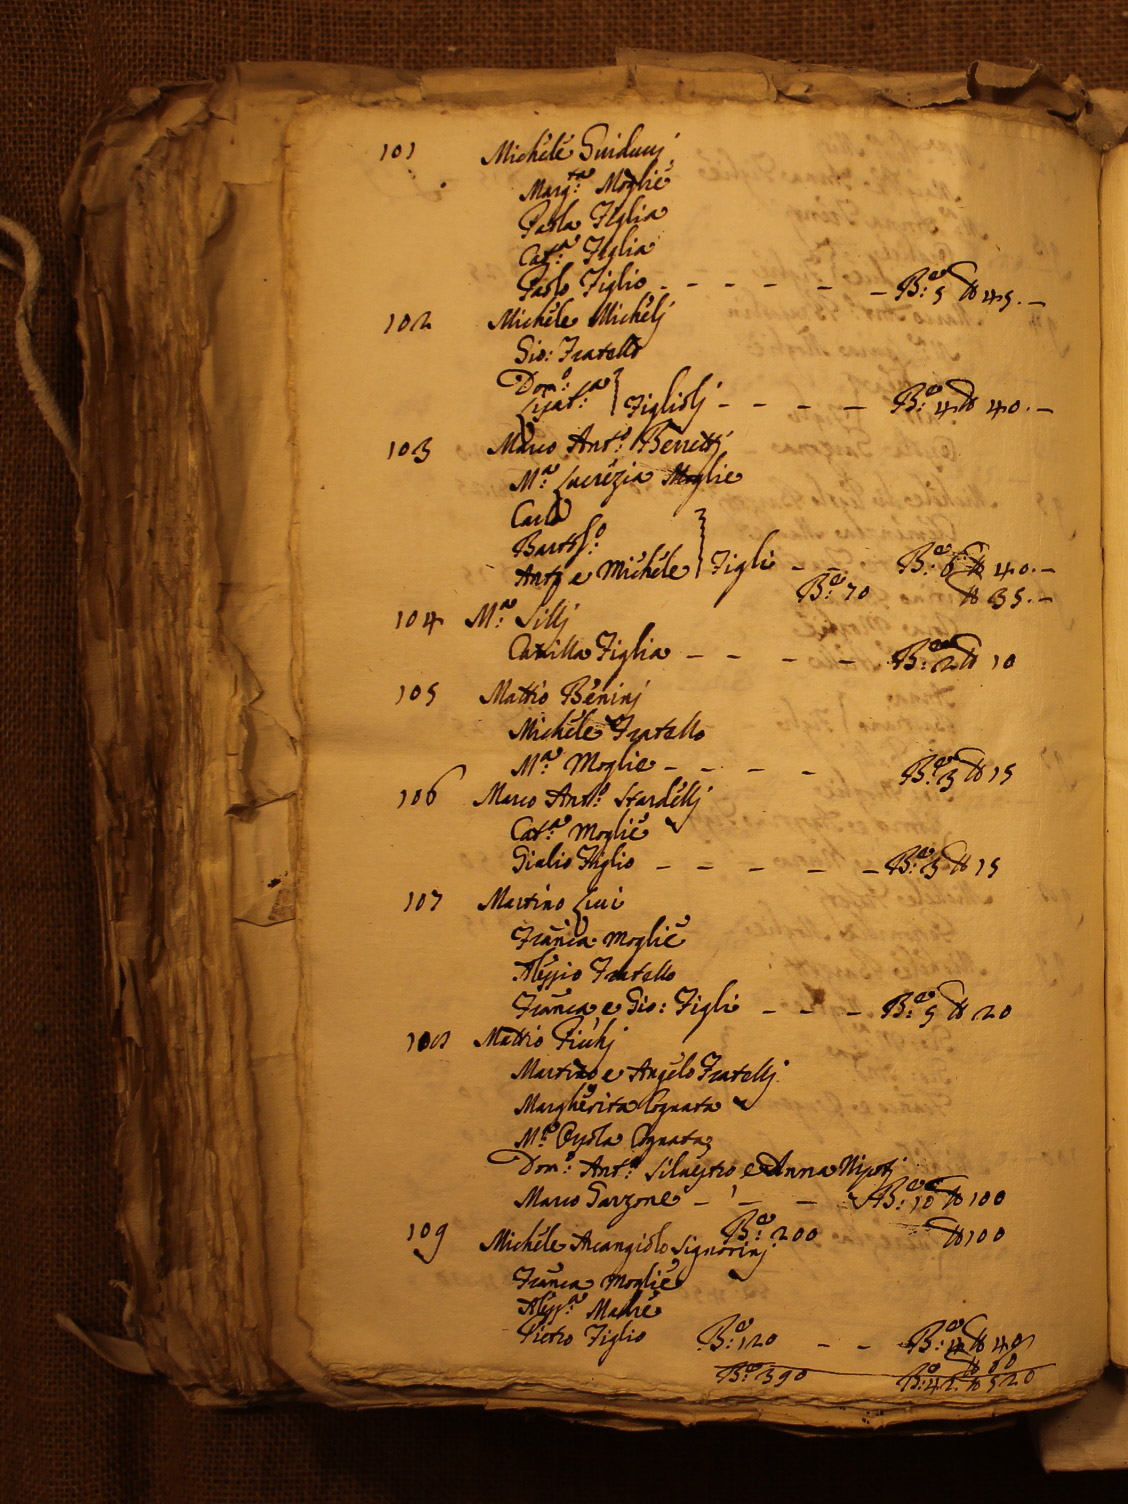 101 Michele Guiducij
Marg:ta Moglie
Paola Figlia
Cat:a Figlia
Paolo Figlio - - - - - - B:e 5 # 45. —
102 Michele Michelj
Gio: Fratello
Dom:o
Figliolj - - - - B:e 4 # 40. —
103 Marco Ant:o Berrettj
M:a Lucrezia Moglie
Carlo
Bart:o
Ant:o e Michele Figli - B:e 6 # 40. —
B:e 70 # 35. —
104 M:a Lillj
Camilla Figlia - - - - B:e 2 # 10
105 Mattio Beninj
Michele Fratello
M:a Moglie - - - - B:e 3 # 15
106 Marco Ant:o Stardellj
Cat:a Moglie
Giulio Figlio - - - - - B:e 3 # 15
107 Martino Liui
Franca Moglie
Alessio Fratello
Franca e Gio: Figli - - - B:e 5 # 20
108 Mattio
Martino e Angelo Fratellj
Margherita Cognata
M:a Cognata
Dom:o Ant:o Siluestro e Anna Nipotj
Marco Garzone - - - - B:e 10 # 100
B:e 200 # 100
109 Michele Arcangiolo Signorinj
Franca Moglie
Madre
Pietro Figlio B:e 120 - - B:e 4 # 40
# 60
B:e 390 B:e 42. # 520